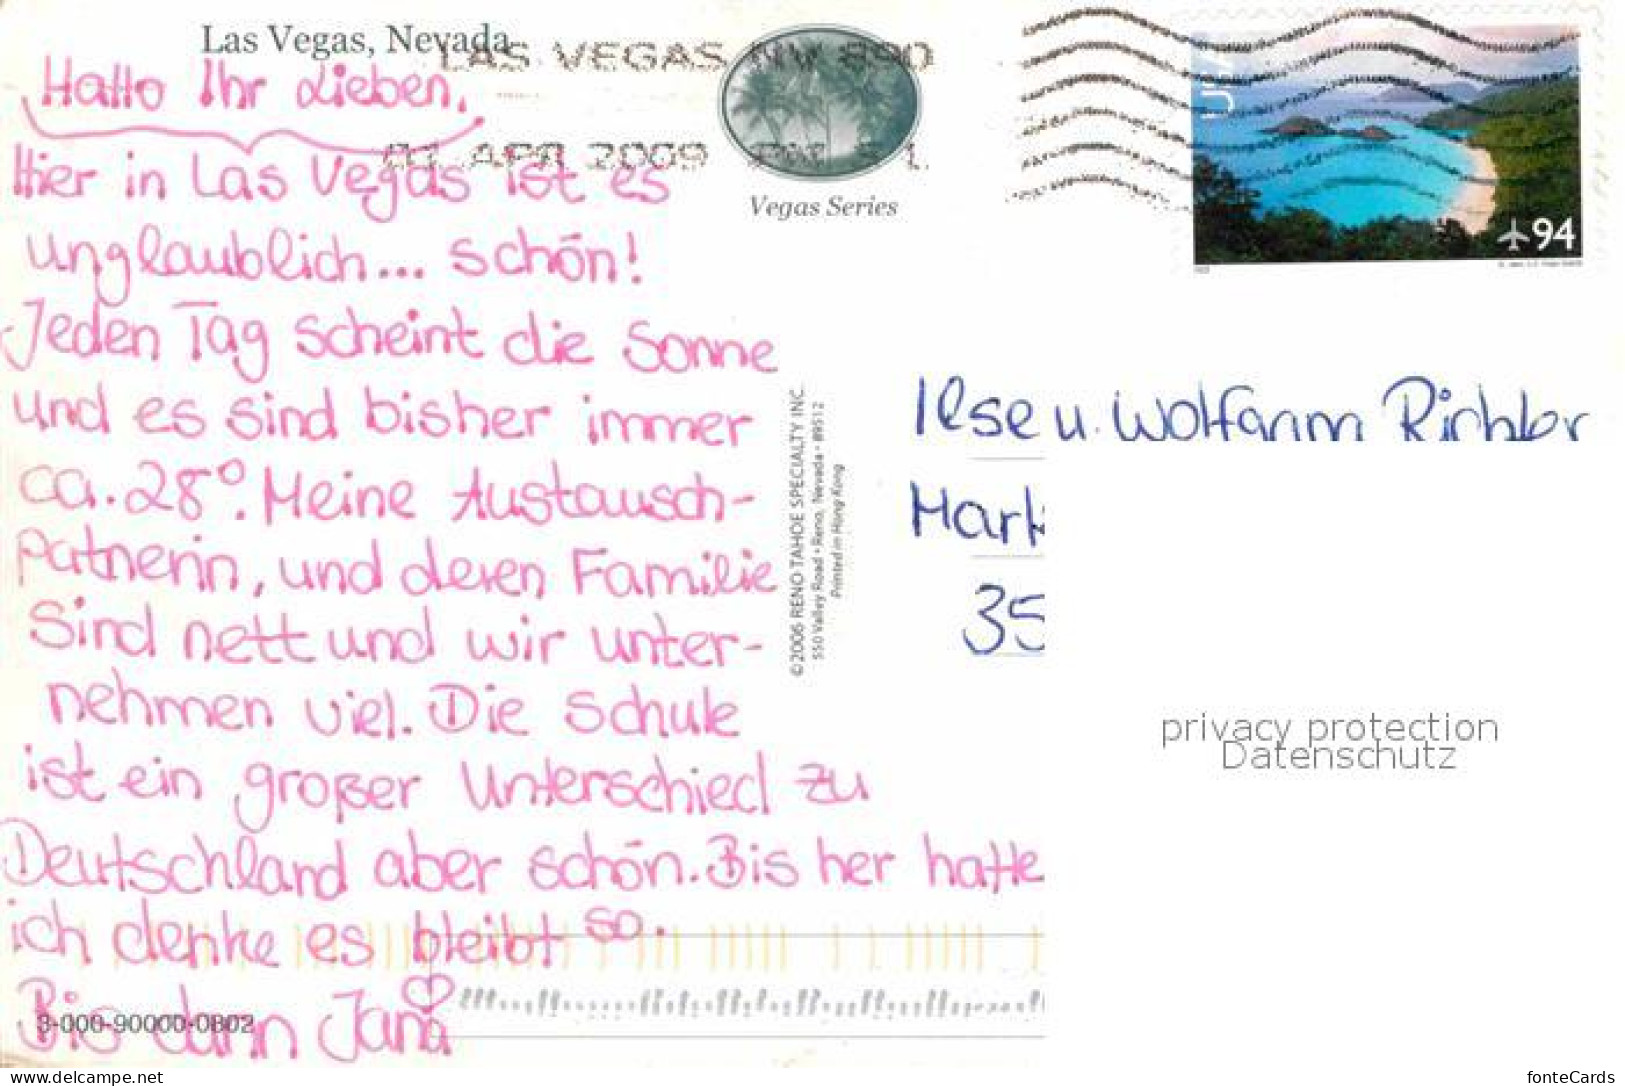 Las Vegas, Nevada
LAS VEGAS NV 890
01 APR 2009 PM 5 L
Vegas Series
USA
94
Hallo Ihr Lieben,
Hier in Las Vegas ist es
unglaublich... schön!
Jeden Tag scheint die Sonne
und es sind bisher immer
ca. 28°. Meine Austausch-
patnerin, und deren Familie
sind nett und wir unter-
nehmen viel. Die Schule
ist ein großer Unterschied zu
Deutschland aber schön. Bis her hatte
ich denke es bleibt so.
Bis dann Jana
3-000-90000-0802
©2006 RENO TAHOE SPECIALTY INC.
550 Valley Road • Reno, Nevada • 89512
Printed in Hong Kong
Ilse u. Wolfgang Richter
Mark
35
privacy protection
Datenschutz
www.delcampe.net
fonteCards